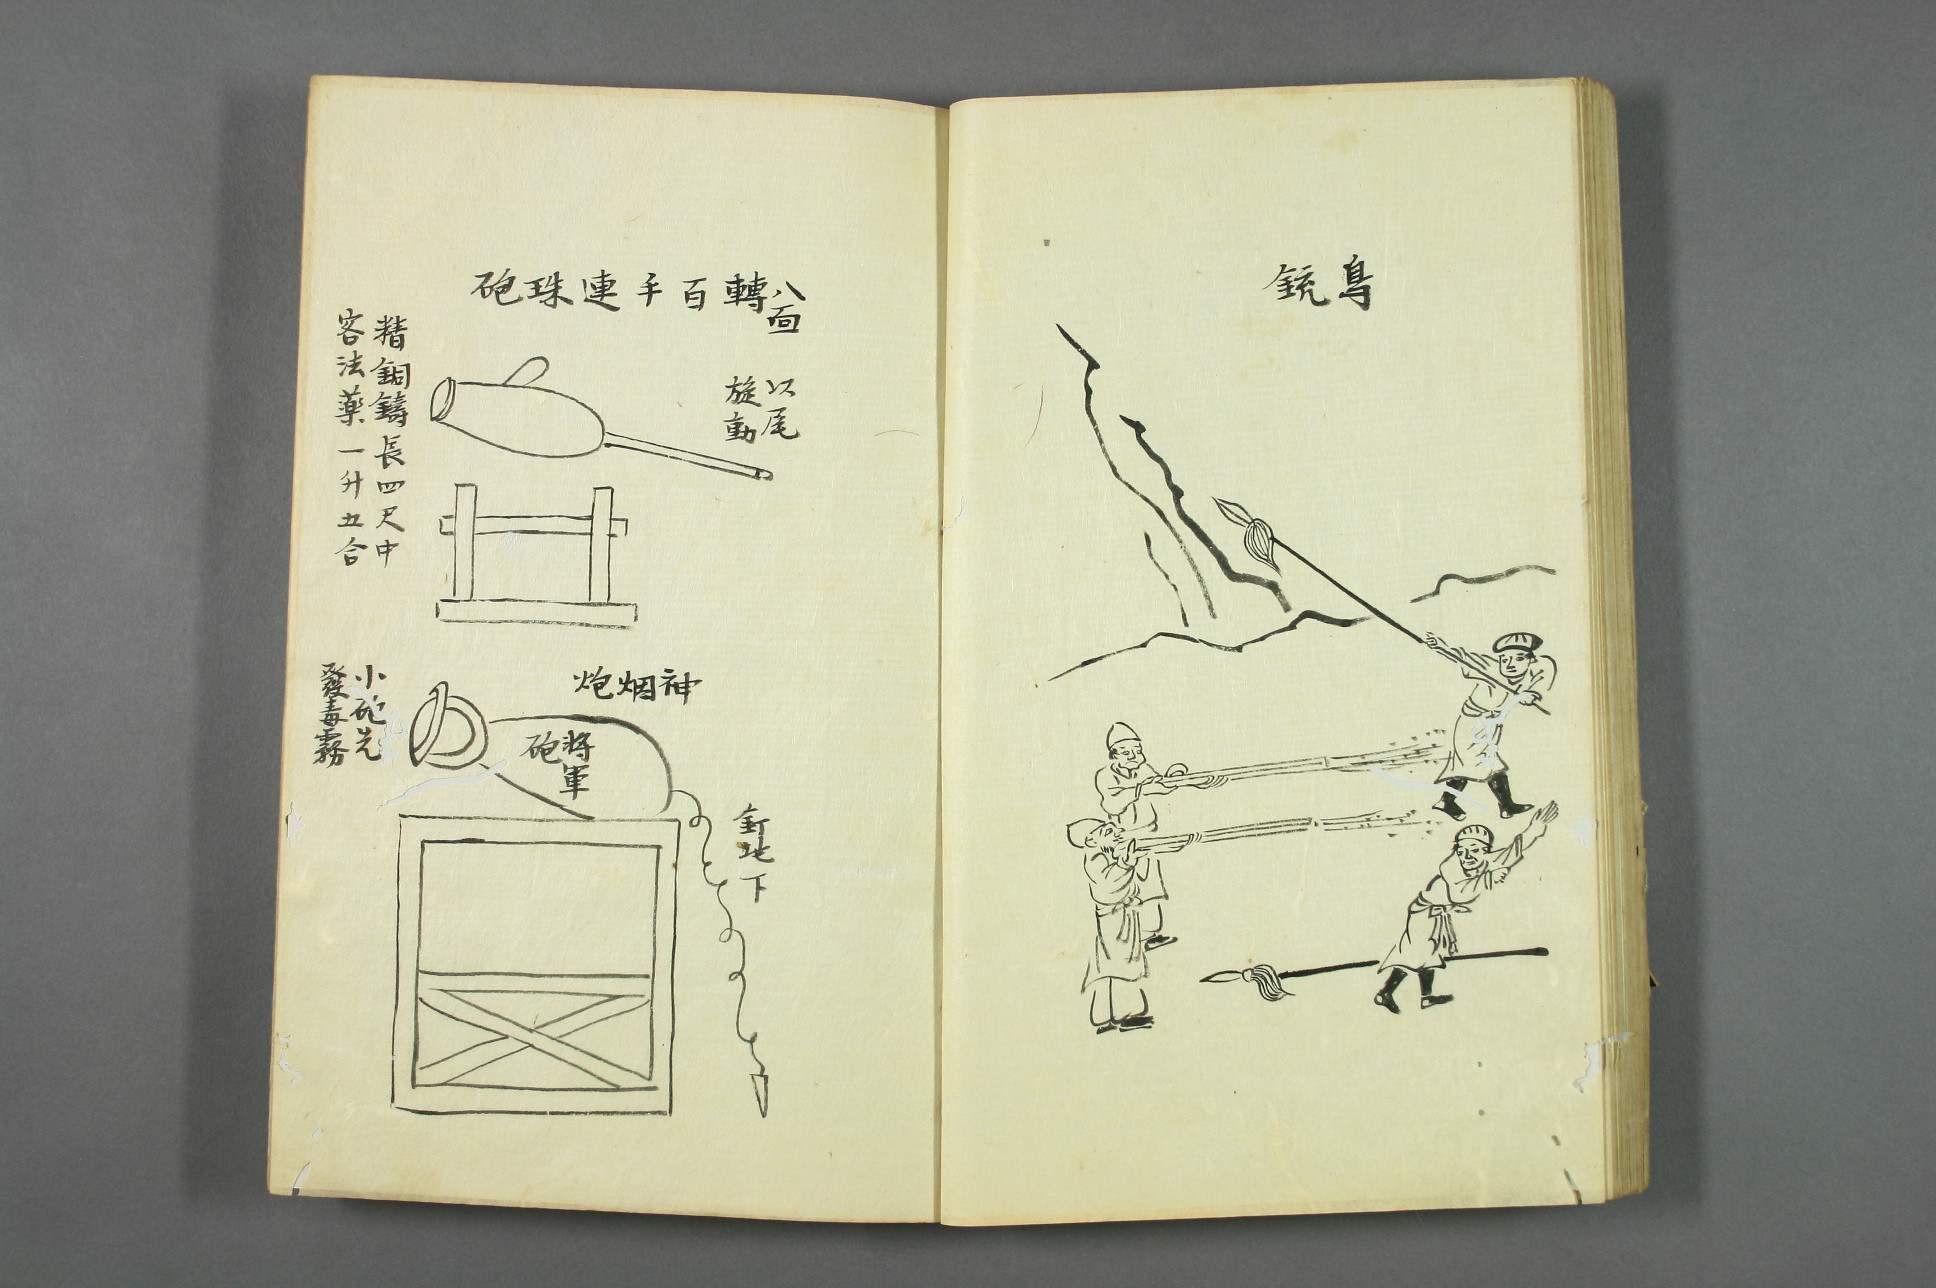 鳥銃
八面
轉百子連珠砲
以尾
旋動
精銅鑄長四尺中
容法藥一升五合
神烟炮
將軍
砲
小砲先
發毒霧
釘地下